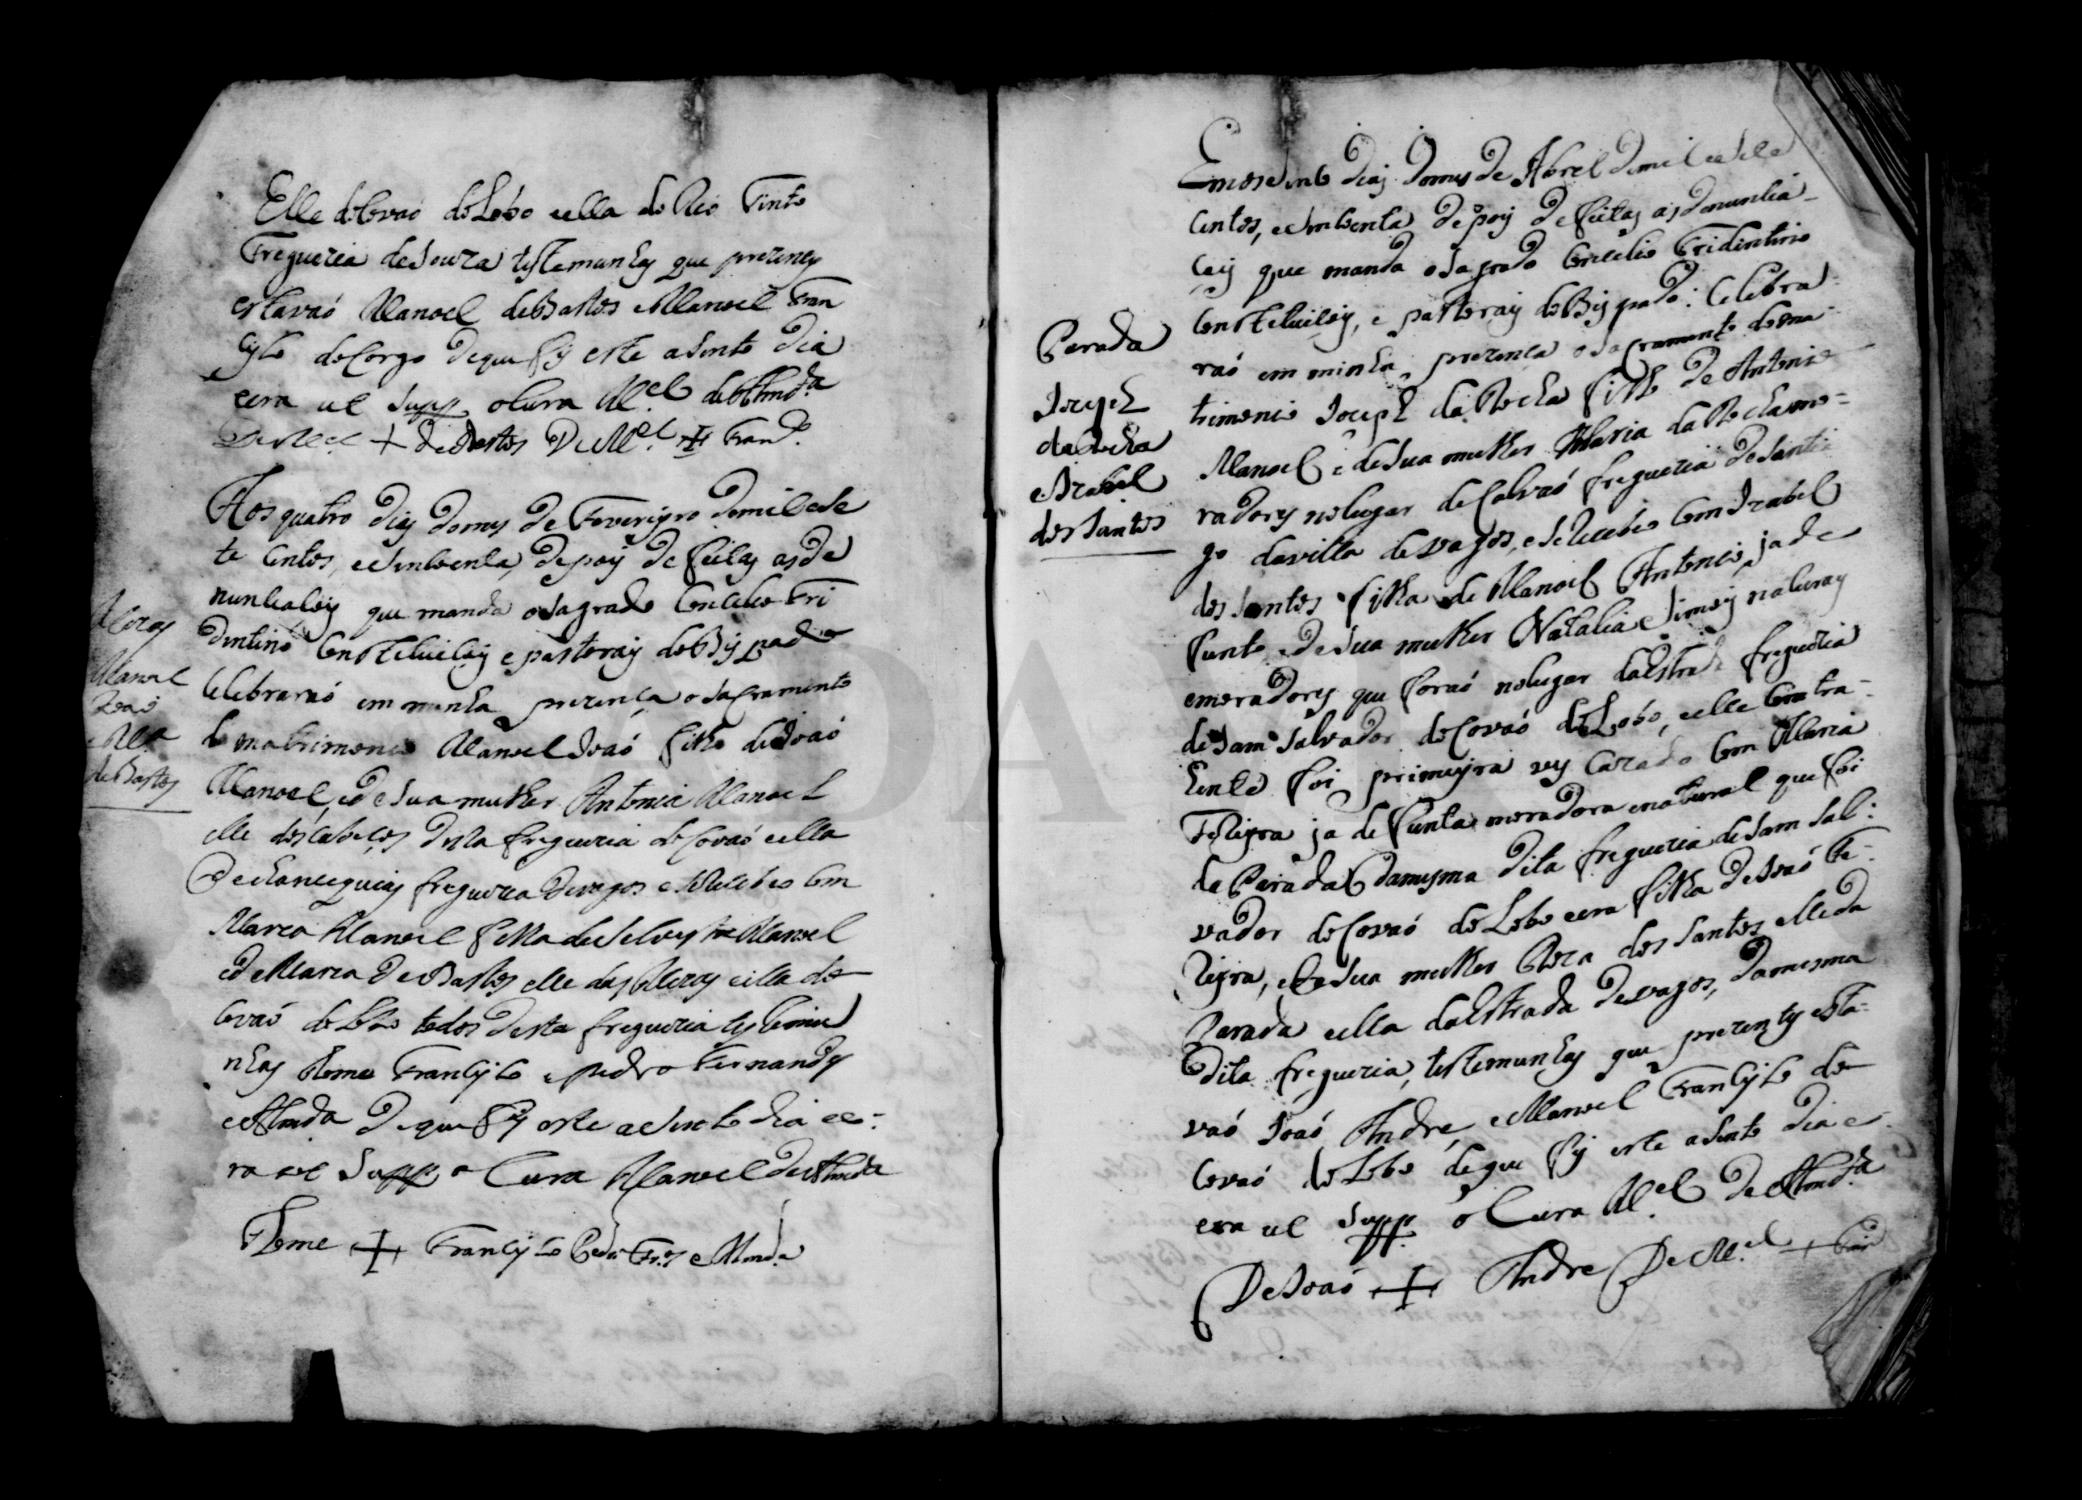 Elle do Covaó do Lobo e ella do Rió Tinto
Freguezia de Souza testemunhas que prezentes
estavaó Manoel de Bastos e Manoel Fran
cisco do Corgo de que fis este asento dia
e era ut supp o Cura M.el de Almd.a
De M.el + de Bastos De M.el + Fran.co
Aos quatro dias do mes de Feverejro de mil e se
te centos, e sincoenta, depois de feitas as de
nunciacois que manda o Sagrado Concilio Tri
dentino Constetuicois e pastorais do Bispado
Celebraraó em minha prezenca o Sacramento
do matrimonio Manoel Joaó filho de Joaó
Manoel, e de sua mulher Antonia Manoel
elle dos Cabecos desta freguezia do Covaó e ella
De freguezia de vagos e se Recebeo Com
Maria Manoel filha de Selvestre Manoel
e de Maria De Bastos elle das e ella do
Covaó do Lobo todos desta freguezia testemu
nhas Thome Francisco e Pedro Fernandes
e Almda De que fis este asento dia e e-
ra ut Supp o Cura Manoel de Almda
Thome + Francisco Pedro Frz e Almd.a
Manoel
Joaó
e M.a
de Bastos
Em os sinco dias do mes de Abrel de mil e sete
centos, e sincoenta depois de feitas as denuncia-
cois que manda o Sagrado Concilio Tridintino
Constetuicois, e pastorais do Bispado: Celebra-
raó em minha prezenca o Sacramento do ma-
trimonio Joseph da Rocha filho de Antonio
Manoel e de sua mulher Maria da Rocha mo-
radores no lugar do Calvaó freguezia de Santi-
go da villa de vagos, e se Recebeo Com Izabel
dos Santos filha de Manoel Antonio, ja de
funto e de sua mulher Natalia Simois naturais
e moradores que foraó no lugar da Estrada freguezia
de Sam Salvador do Covaó do Lobo, e elle Contra-
hente foi primejra ves Cazado Com Maria
Teixejra ja defunta moradora e natural que foi
da Parada da mesma dita freguezia de Sam Sal-
vador do Covaó do Lobo e era filha de Joaó Te-
ixejra, e de sua mulher Roza dos Santos elle da
Parada e ella da Estrada de vagos, da mesma
dita freguezia, testemunhas que prezentes esta-
vaó Joaó Andre, e Manoel Francisco do
Covaó do Lobo de que fis este asento dia e
era ut Supp o Cura M.el De Almd.a
De Joaó + Andre De M.el + Fran.co
Parada
Joseph
da Rocha
e Izabel
dos Santos
ADAV